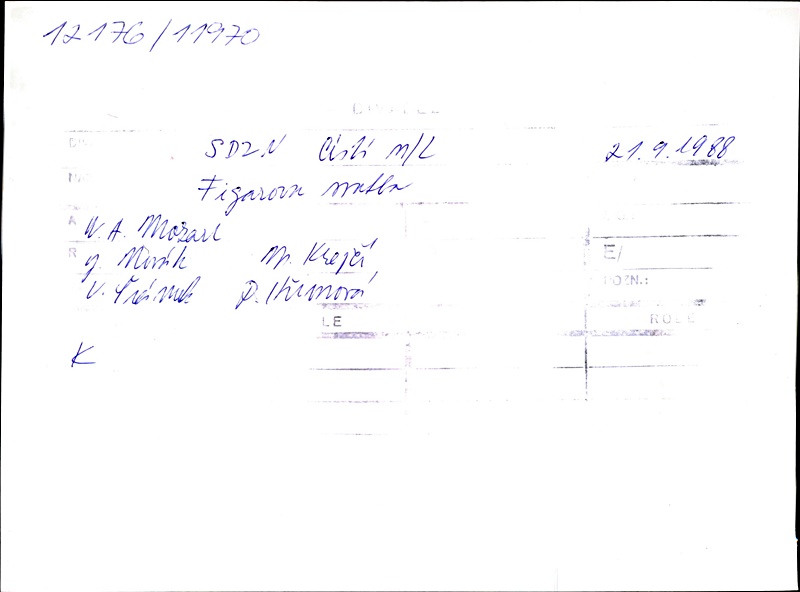 12176/11970
SDZN Ústí n/L 21.9.1988
Figarova svatba
W. A. Mozart
J. Novák M. Krejčí
E/
V. D.
POZN.:
LE ROLE
K